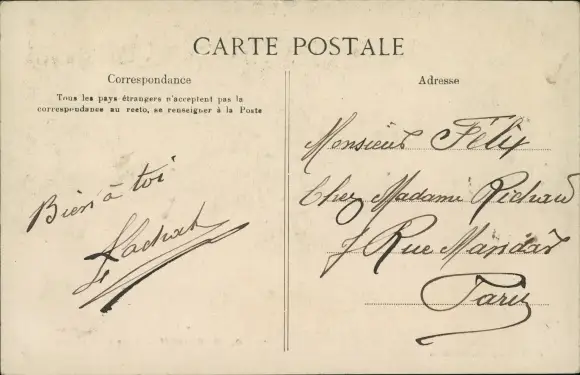 CARTE POSTALE
Correspondance
Tous les pays étrangers n'acceptent pas la
correspondance au recto, se renseigner à la Poste
Bien à toi
Adresse
Monsieur Félix
Chez Madame Richard
Rue Mandar
Paris